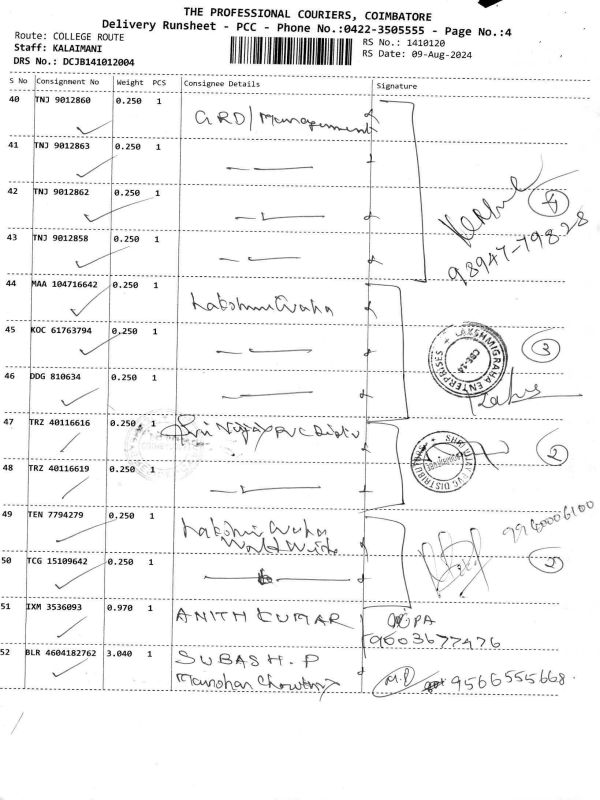 THE PROFESSIONAL COURIERS, COIMBATORE
Delivery Runsheet - PCC - Phone No.:0422-3505555 - Page No.:4
Route: COLLEGE ROUTE
Staff: KALAIMANI
DRS No.: DCJB141012004
RS No.: 1410120
RS Date: 09-Aug-2024
S No Consignment No Weight PCS Consignee Details Signature
40 TNJ 9012860 0.250 1 GRD/Management
41 TNJ 9012863 0.250 1
42 TNJ 9012862 0.250 1
4
43 TNJ 9012858 0.250 1
98947-79828
44 MAA 104716642 0.250 1
45 KOC 61763794 0.250 1
LAKSHMIGRAHA ENTERPRISES
CBE-14
3
46 DDG 810634 0.250 1
47 TRZ 40116616 0.250 1
2
48 TRZ 40116619 0.250 1
49 TEN 7794279 0.250 1
50 TCG 15109642 0.250 1
2
51 IXM 3536093 0.970 1 ANITH KUMAR PA
9603677476
52 BLR 4604182762 3.040 1 SUBASH.P
M.P 9566555668